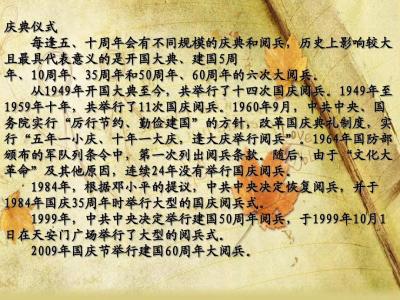 庆典仪式
每逢五、十周年会有不同规模的庆典和阅兵，历史上影响较大
且最具代表意义的是开国大典、建国5周
年、10周年、35周年和50周年、60周年的六次大阅兵。
从1949年开国大典至今，共举行了十四次国庆阅兵。1949年至
1959年十年，共举行了11次国庆阅兵。1960年9月，中共中央、国
务院实行“厉行节约、勤俭建国”的方针，改革国庆典礼制度，实
行“五年一小庆、十年一大庆，逢大庆举行阅兵”。1964年国防部
颁布的军队列条令中，第一次列出阅兵条款。随后，由于“文化大
革命”及其他原因，连续24年没有举行国庆阅兵。
1984年，根据邓小平的提议，中共中央决定恢复阅兵，并于
1984年国庆35周年时举行大型的国庆阅兵式。
1999年，中共中央决定举行建国50周年阅兵，于1999年10月1
日在天安门广场举行了大型的阅兵式。
2009年国庆节举行建国60周年大阅兵。